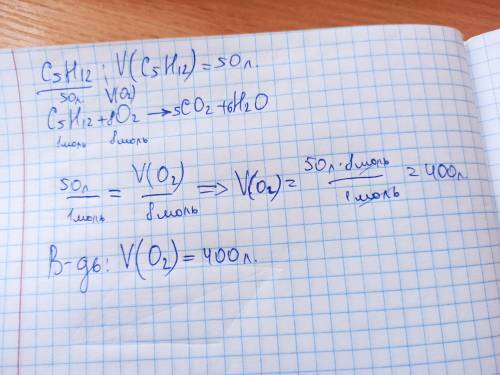 C5H12; V(C5H12)=50л.
50л. V(O2)
C5H12+8O2→5CO2+6H2O
1моль 8моль
50л/1моль = V(O2)/8моль => V(O2)= 50л·8моль/1моль = 400л
В-дь: V(O2)=400л.